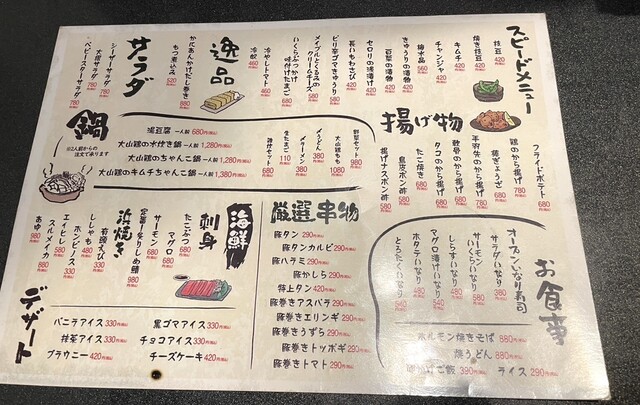 スピードメニュー
枝豆 420
焼き枝豆 420
キムチ 420
チャンジャ 420
梅水晶 560
きゅうりの漬物 420
白菜の漬物 420
セロリの浅漬け 420
長いもわさび 420
ピリ辛ゴマきゅうり 580
メイプルとくるみのクリームチーズ 580
いくらぶっかけ味付けたまご 680
冷やしトマト 460
冷奴 460
逸品
かにあんかけだし巻き 880
もつ煮込み 520
サラダ
シーザーサラダ 780
大根サラダ 780
ベビースターサラダ 780
揚げ物
フライドポテト 680
鶏のから揚げ 780
藤ぎょうざ
手羽先のから揚げ 780
軟骨のから揚げ 680
タコのから揚げ 680
たこ焼き 580
鳥皮ポン酢 580
揚げナスポン酢 580
鍋
※2人前からの注文で承ります
湯豆腐 一人前 680円(税込)
大山鶏の水炊き鍋 一人前 1,280円(税込)
大山鶏のちゃんこ鍋 一人前 1,280円(税込)
大山鶏のキムチちゃんこ鍋 一人前 1,380円(税込)
野菜セット 980
大山鶏もも 1080
〆うどん 380
〆ラーメン 380
生たまご 110
雑炊セット 680
海鮮
刺身
たこぶつ 680
マグロ 680
サーモン 680
980
浜焼き
有頭えび 330
ししゃも 480
ホンビノス 330
エイヒレ 620
スルメイカ 880
あゆ 980
厳選串物
豚タン 290円(税込)
豚タンカルビ 290円(税込)
豚ハラミ 290円(税込)
豚かしら 290円(税込)
特上タン 420円(税込)
豚巻きアスパラ 290円(税込)
豚巻きエリンギ 290円(税込)
豚巻きうずら 290円(税込)
豚巻きトッポギ 290円(税込)
豚巻きトマト 290円(税込)
お食事
オープンいなり寿司
サラダいなり 380
サーモンいくらいなり 580
しらすいなり 480
マグロ漬けいなり 540
ホタテいなり 480
とろたくいなり 560
ホルモン焼きそば 880円(税込)
焼うどん 880円(税込)
390円(税込)
ライス 290円(税込)
デザート
バニラアイス 330円(税込)
抹茶アイス 330円(税込)
ブラウニー 420円(税込)
黒ゴマアイス 330円(税込)
チョコアイス 330円(税込)
チーズケーキ 420円(税込)